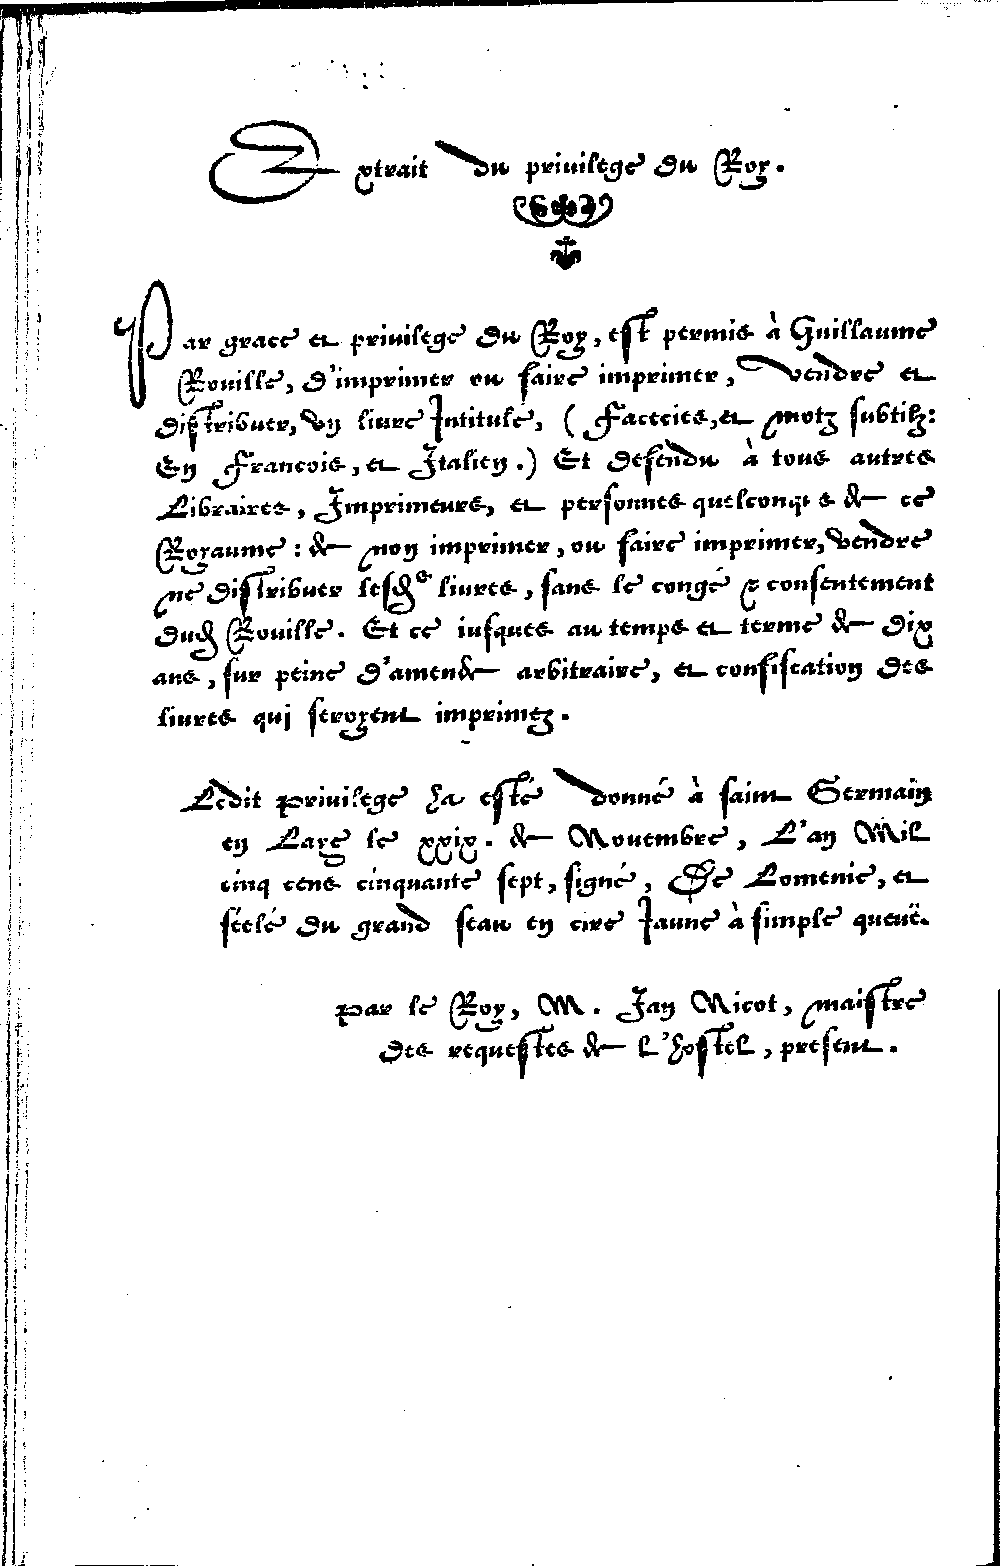 Extrait du priuilege du Roy.
Par grace et priuilege du Roy, est permis à Guillaume
Rouille, d'imprimer ou faire imprimer, vendre et
distribuer, vn liure Intitulé, ( Facecies, et motz subtilz:
En Francois, et Italien.) Et defendu à tous autres
Libraires, Imprimeurs, et personnes quelconques de ce
Royaume : de non imprimer, ou faire imprimer, vendre
ne distribuer lesdes liures, sans le congé & consentement
dud Rouille. Et ce iusques au temps et terme de dix
ans, sur peine d'amende arbitraire, et confiscation des
liures qui seroyent imprimez.
Ledit priuilege ha esté donné à saint Germain
en Laye le xxix. de Nouembre, L'an Mil
cinq cens cinquante sept, signé, De Lomenie, et
séelé du grand seau en cire Iaune à simple queuë.
Par le Roy, M. Ian Nicot, maistre
des requestes de l'hostel, present.